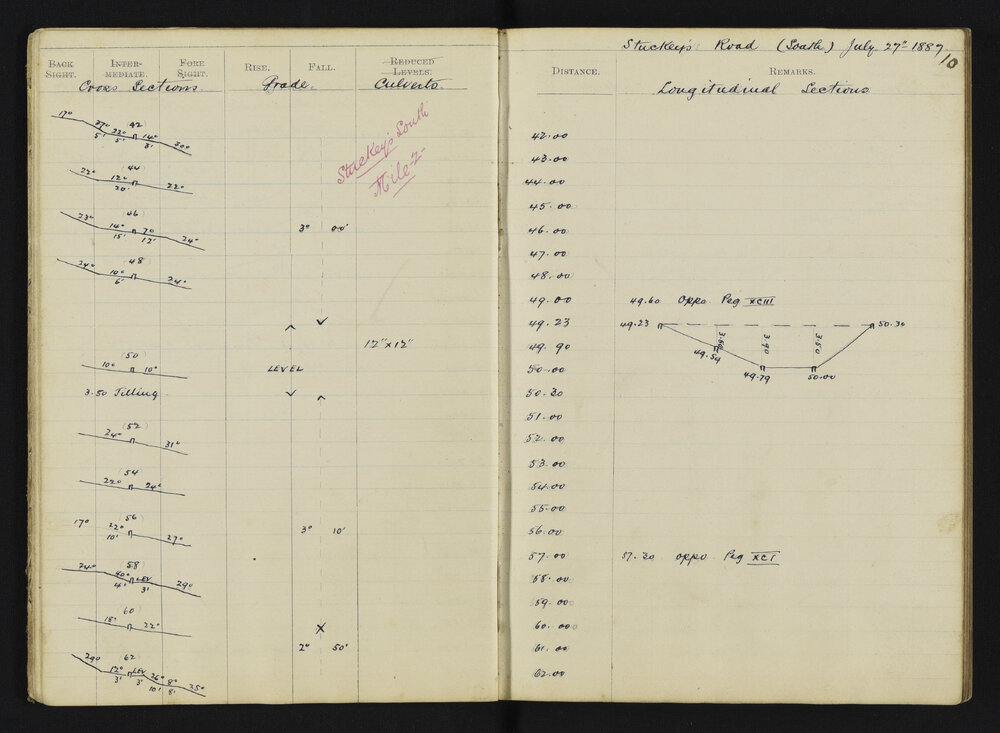 BACK SIGHT. INTER-MEDIATE. FORE SIGHT. RISE. FALL. REDUCED LEVELS.
Cross Sections. Grade. Culverts.
Stuckey's South
Mile-2-
17° 27° 22° 42 14° 30°
5' 5' 8'
22° 12° (44) 22°
20'
23° 14° (46) 70 24°
15' 12'
3° 00'
24° 10° (48) 24°
6'
12" x 12"
(50)
10° 10°
LEVEL
3.50 Filling
(52)
24° 31°
(54)
22° 24°
17° 22° 56 27°
10'
3° 10'
24° 40° 58 LEV 29°
4' 3'
60
18° 22°
2° 50'
29° 12° 62 LEV 26° 8° 25°
3' 3' 10' 8'
Stuckey's Road (South) July 27th 1887
10
DISTANCE. REMARKS.
Longitudinal Sections
42.00
43.00
44.00
45.00
46.00
47.00
48.00
49.00 49.60 Oppo. Peg XCIII
49.23 49.23 50.30
3.90 3.50
49.90 49.54
50.00 49.79 50.00
50.30
51.00
52.00
53.00
54.00
55.00
56.00
57.00 57.30 oppo Peg XCI
58.00
59.00
60.00
61.00
62.00